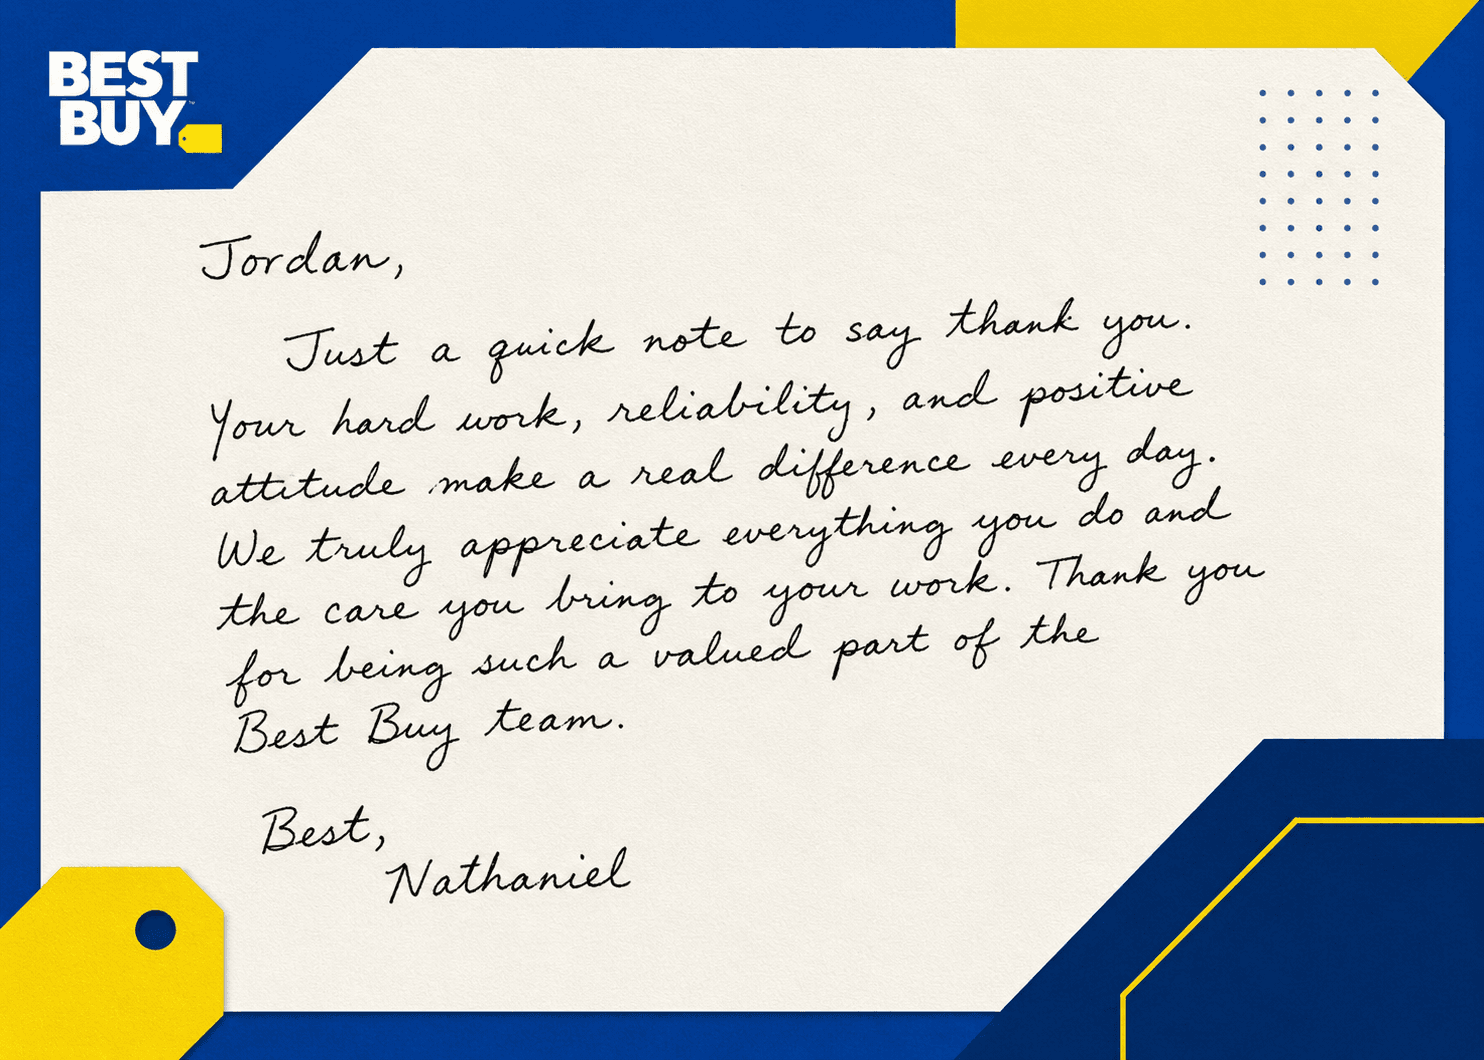 BEST
BUY™
Jordan,
Just a quick note to say thank you.
Your hard work, reliability, and positive
attitude make a real difference every day.
We truly appreciate everything you do and
the care you bring to your work. Thank you
for being such a valued part of the
Best Buy team.
Best,
Nathaniel